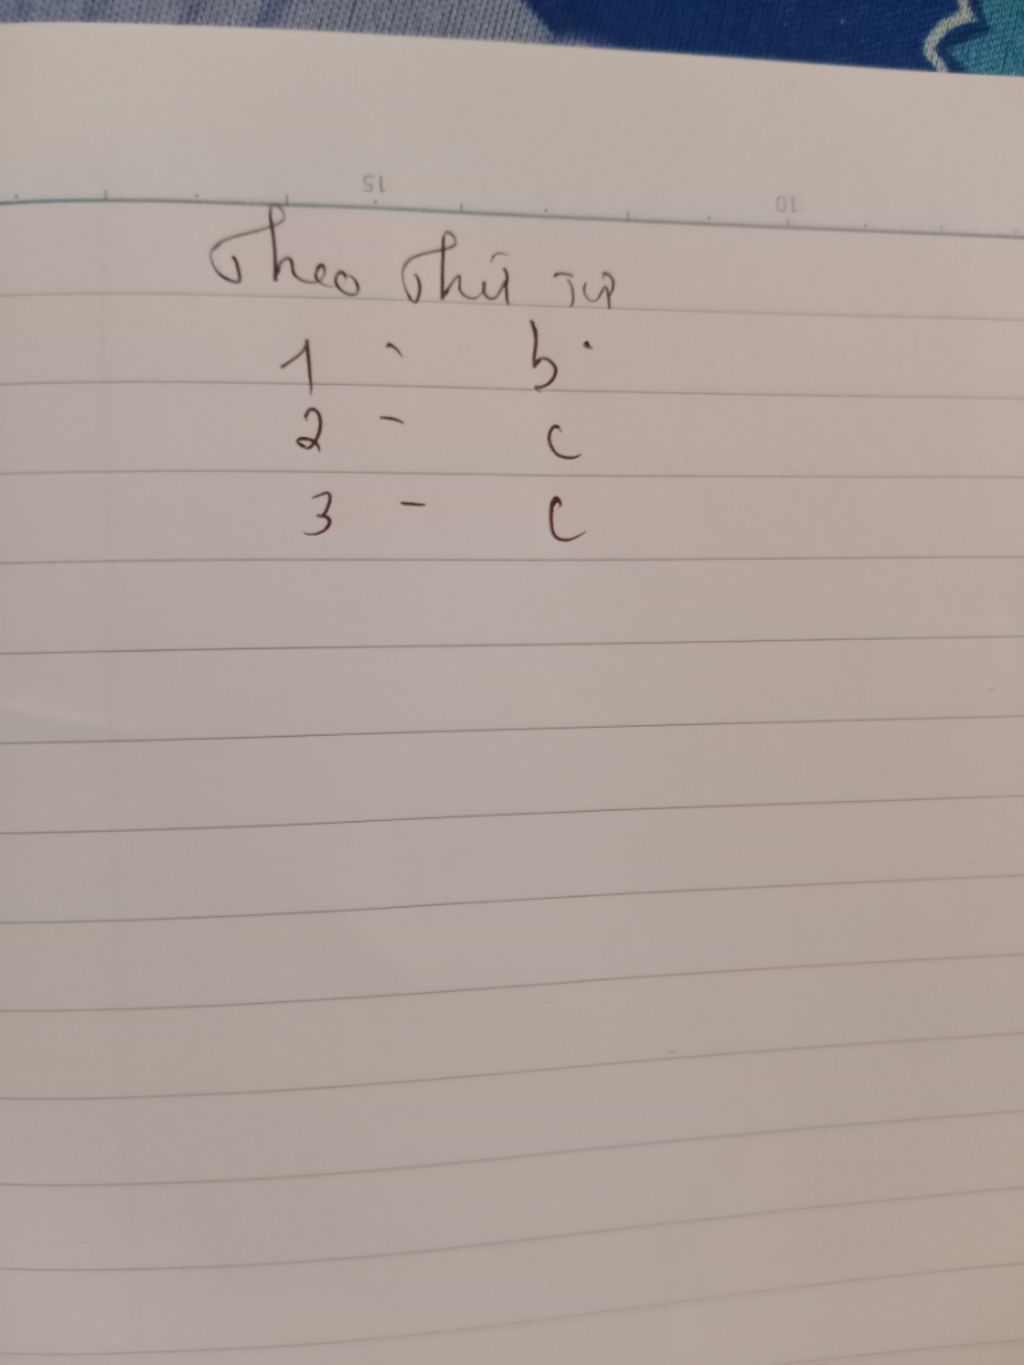 15
10
Theo thứ tự
1 - b.
2 - c
3 - c